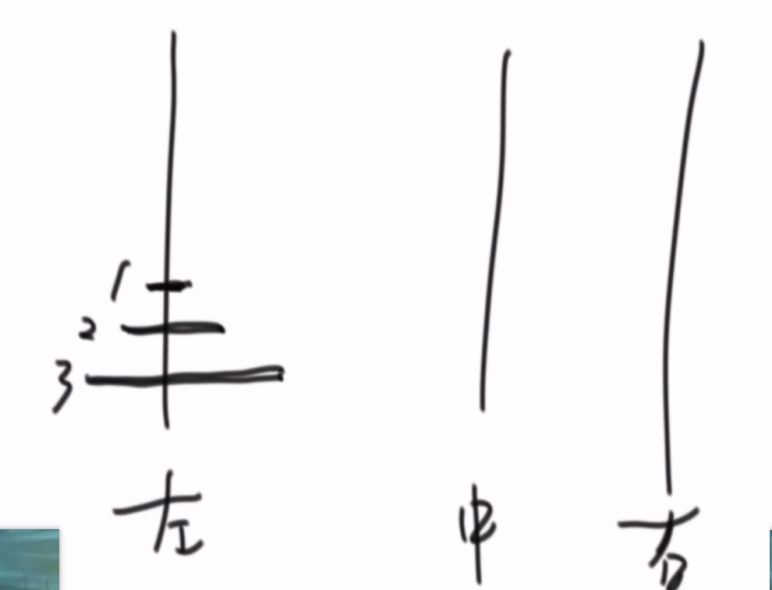 1
2
3
左 中 右